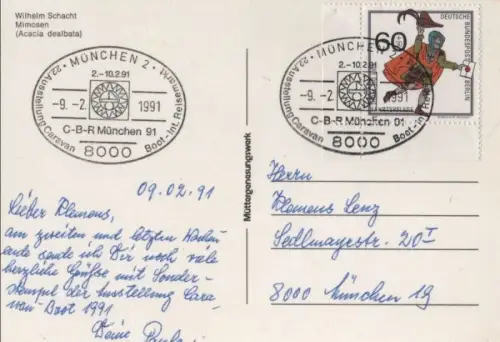 Wilhelm Schacht
Mimosen
(Acacia dealbata)
MÜNCHEN 2
2.-10.2.91
-9.-2. 1991
C-B-R München 91
8000
22. Ausstellung Caravan Boot-Int. Reisemarkt
MÜNCHEN
2.-10.2.91
-9.-2. 1991
C-B-R München 91
8000
22. Ausstellung Caravan Boot-Int. Rei
60
DEUTSCHE
BUNDESPOST
BERLIN
Müttergenesungswerk
09.02.91
Lieber Klemens,
am zweiten und letzten Wochen
ende sende ich Dir noch viele
herzliche Grüße mit Sonder-
stempel der Ausstellung Cara
van-Boot 1991
Deine
Herrn
Klemens Lenz
Sedlmayrstr. 20 I
8000 München 19